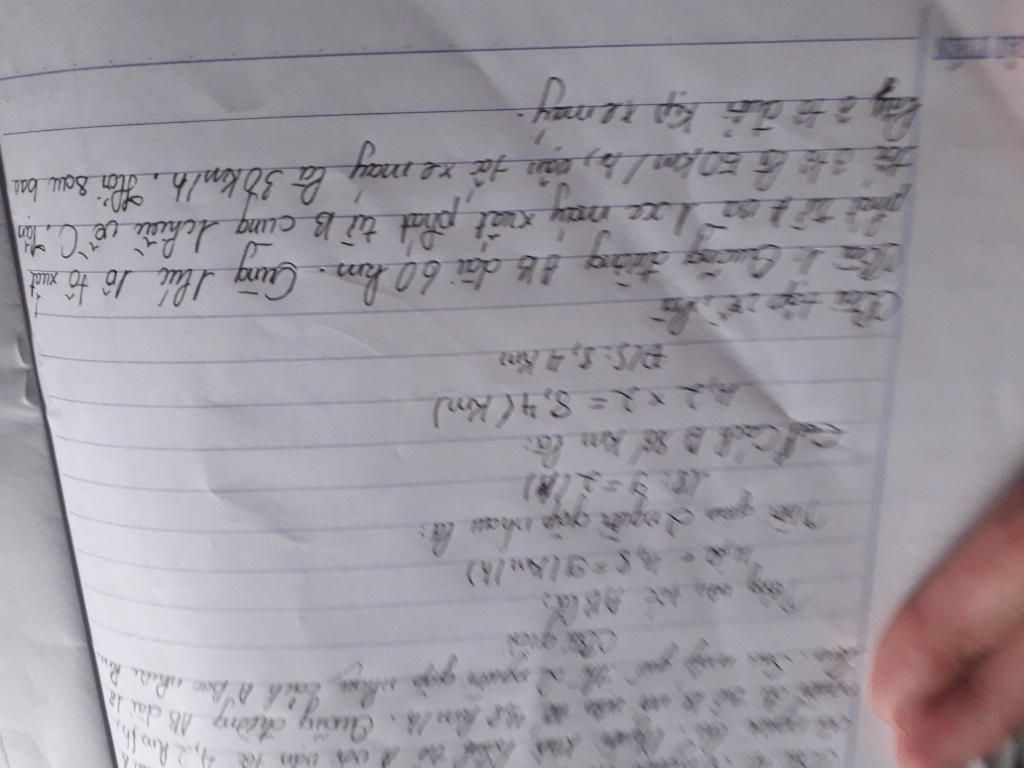 người đi bộ từ B với vận tốc 4,8 km/h. Quãng đường AB dài 18
km. Sau mấy giờ thì 2 người gặp nhau, cách A bao nhiêu km.
Bài giải
Tổng vận tốc AB là:
4,2 + 4,8 = 9 (km/h)
Thời gian 2 người gặp nhau là:
18 : 9 = 2 (h)
Cách A số km là:
4,2 x 2 = 8,4 (km)
Đ/S: 8,4 km
Bài tập về nhà
Bài 1: Quãng đường AB dài 60 km. Cùng 1 lúc 1 ô tô xuất
phát từ A và 1 xe máy xuất phát từ B cùng chiều về C. Vận
tốc ô tô là 50 km/h, vận tốc xe máy là 30 km/h. Hỏi sau bao
lâu ô tô đuổi kịp xe máy.